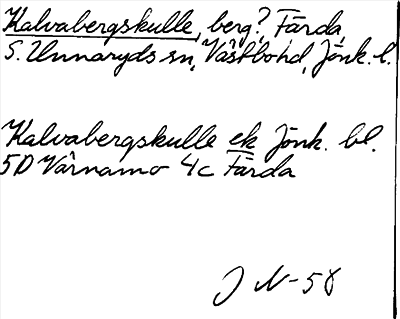 Kalvabergskulle, berg? Färda,
S. Unnaryds sn, Västbohd, Jönk. l.
Kalvabergskulle ek Jönk. bl.
5D Värnamo 4c Färda
J N-58